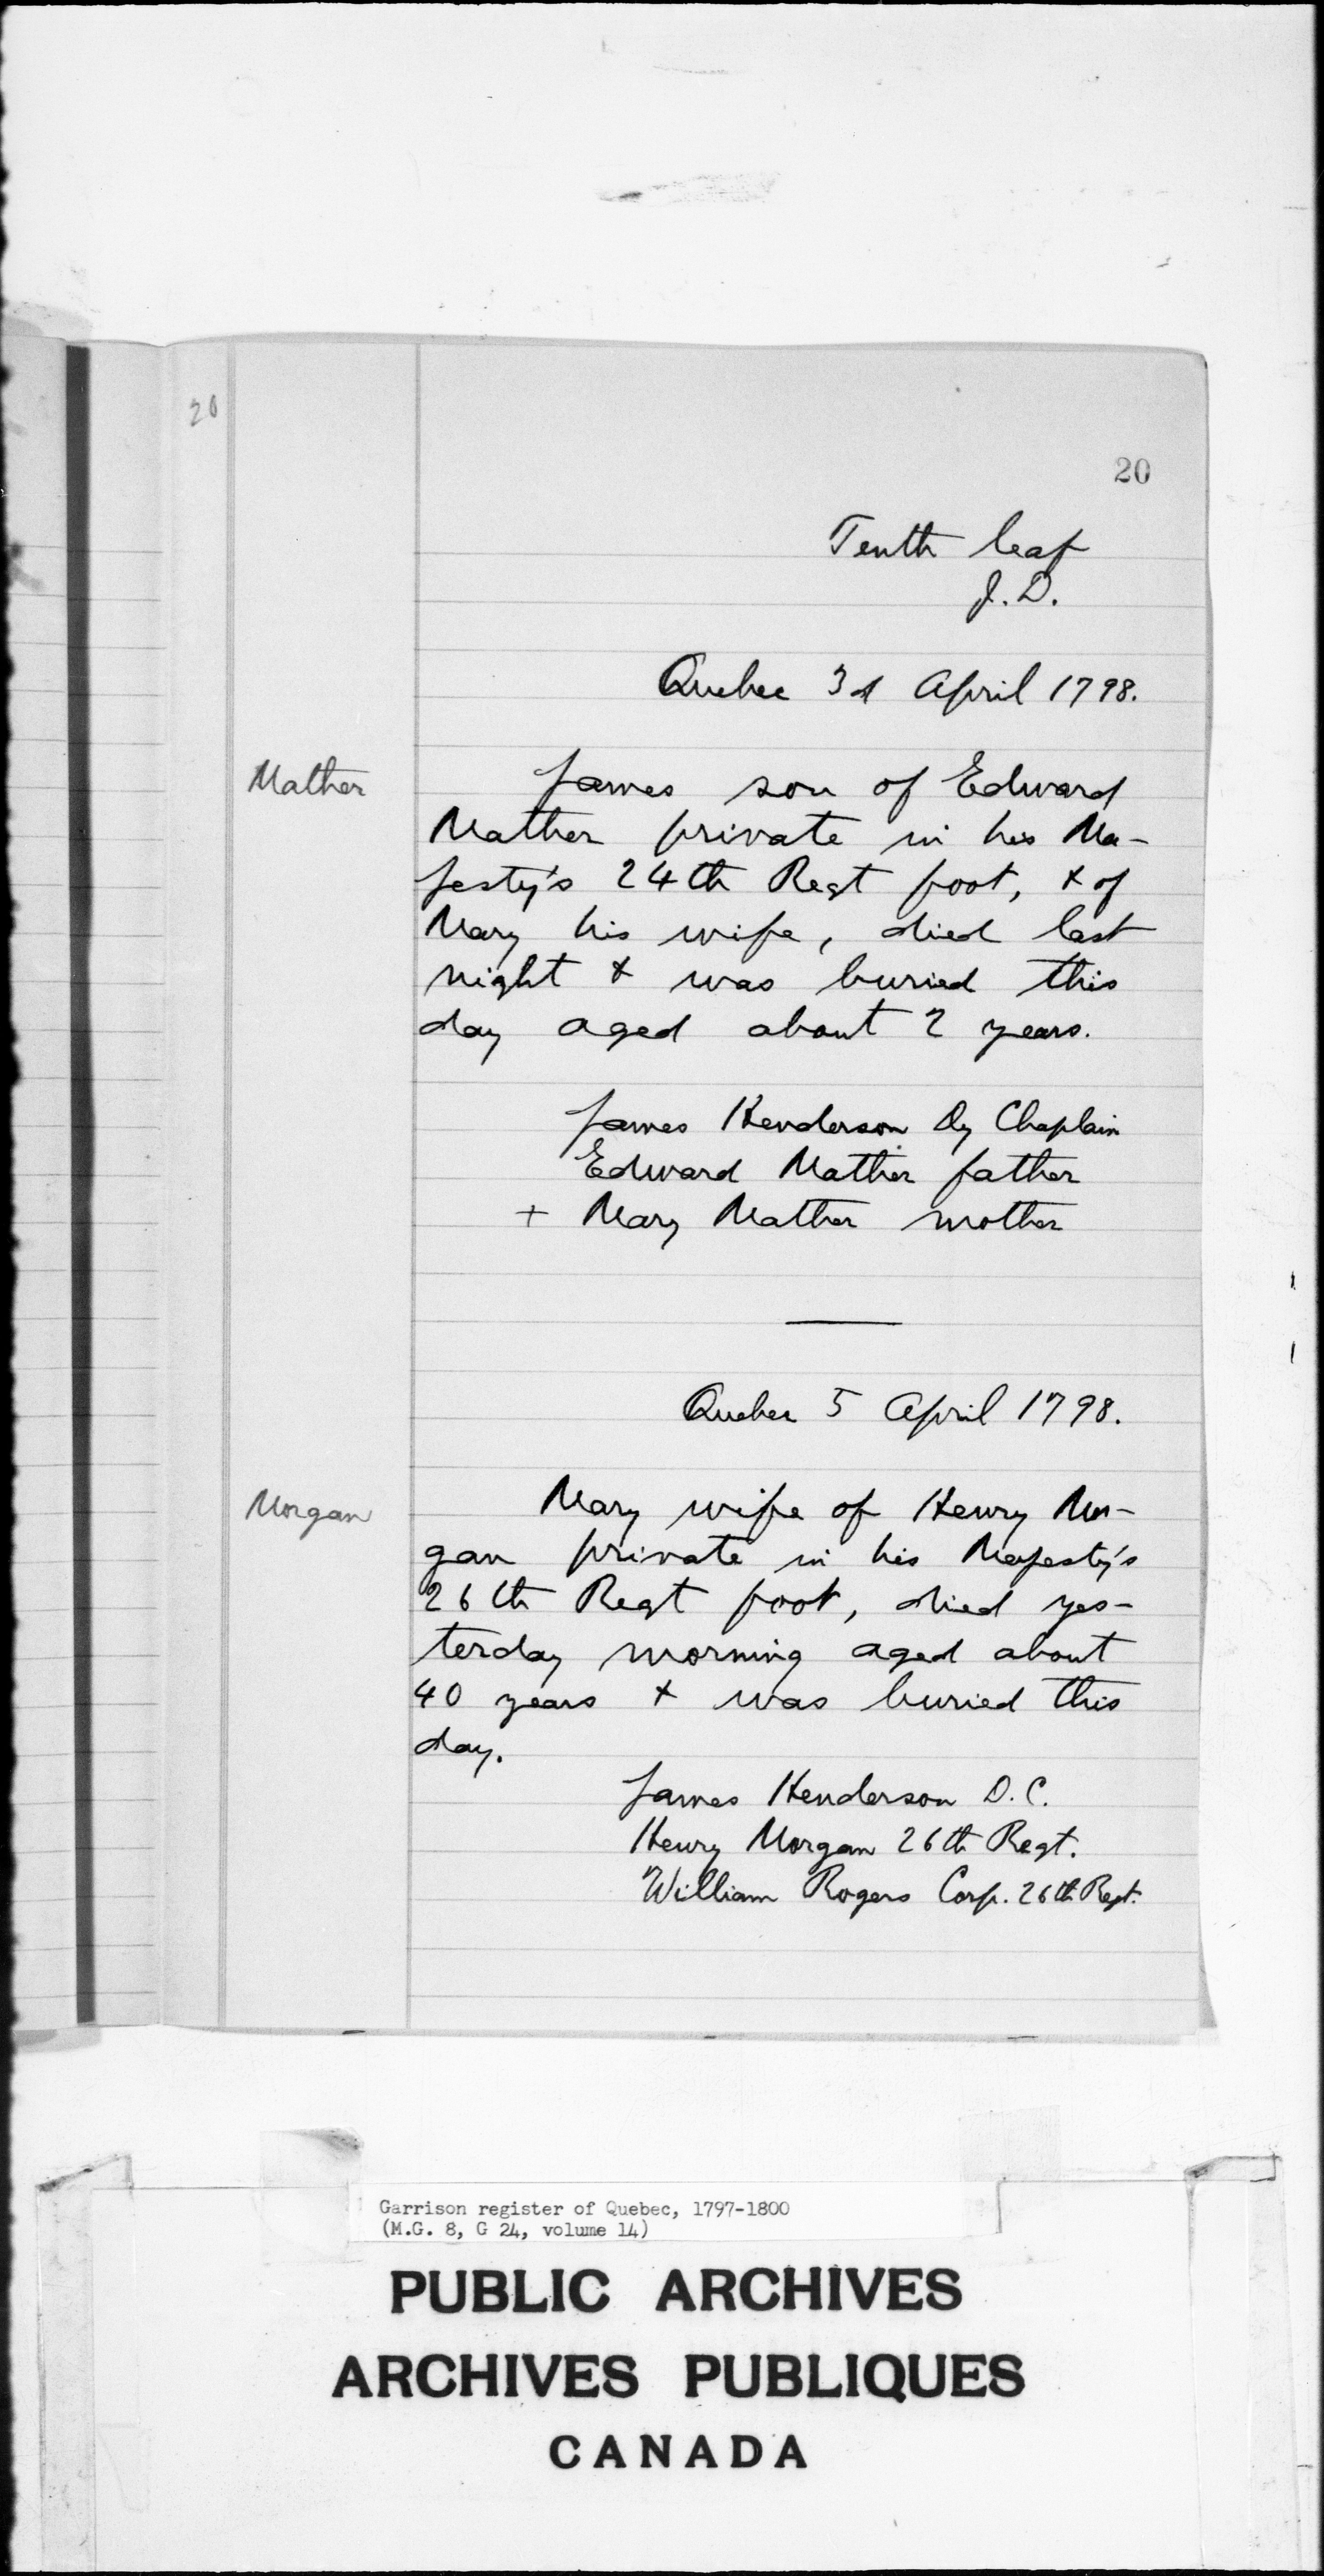 20
20
Tenth leaf
J.D.
Quebec 3d April 1798.
Mather
James son of Edward
Mather private in his Ma-
jesty's 24th Regt foot, & of
Mary his wife, died last
night & was buried this
day aged about 2 years.
James Henderson Dy Chaplain
Edward Mather father
+ Mary Mather mother
Quebec 5 April 1798.
Morgan
Mary wife of Henry Mor-
gan private in his Majesty's
26th Regt foot, died yes-
terday morning aged about
40 years & was buried this
day.
James Henderson D.C.
Henry Morgan 26th Regt.
William Rogers Corp. 26th Regt.
Garrison register of Quebec, 1797-1800
(M.G. 8, G 24, volume 14)
PUBLIC ARCHIVES
ARCHIVES PUBLIQUES
CANADA